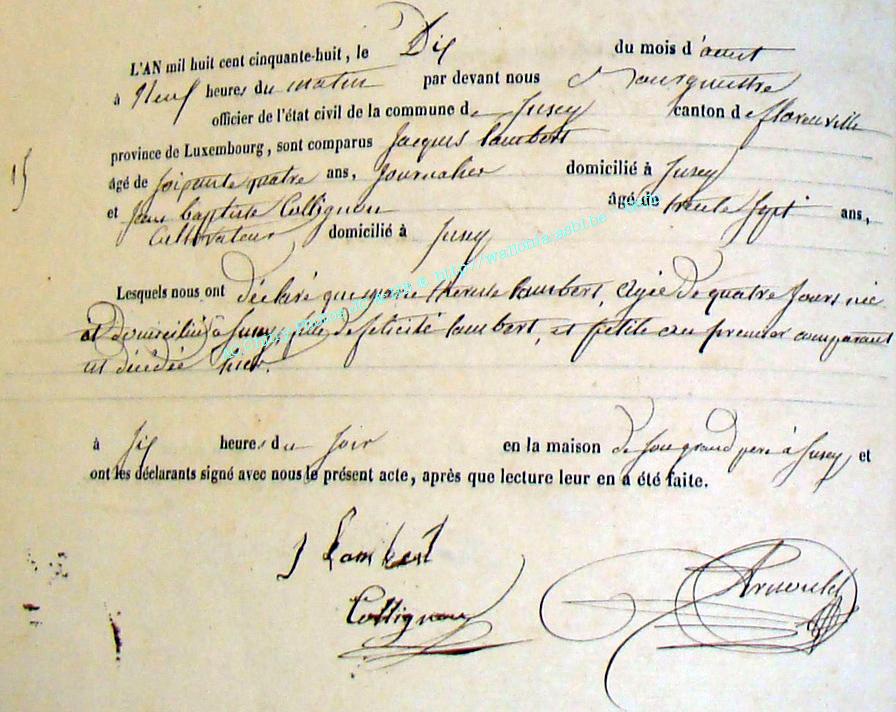 L'AN mil huit cent cinquante-huit, le Dix du mois d'aout
à Neuf heures du matin par devant nous Bourgmestre
officier de l'état civil de la commune de Jusey canton de florenville
15
province de Luxembourg, sont comparus Jacques Lambert
âgé de soixante quatre ans, Journalier domicilié à Jusey
et Jean Baptiste Collignon âgé de trente sept ans,
Cultivateur domicilié à Jusey
Lesquels nous ont déclaré que marie therese Lambert, agée de quatre jours née
et domiciliée à Jusey, fille de felicité lambert, et petite au premier comparant
est décédée hier.
à six heures du soir en la maison de son grand pere à Jusey, et
ont les déclarants signé avec nous le présent acte, après que lecture leur en a été faite.
J Lambert
Arnould
Collignon